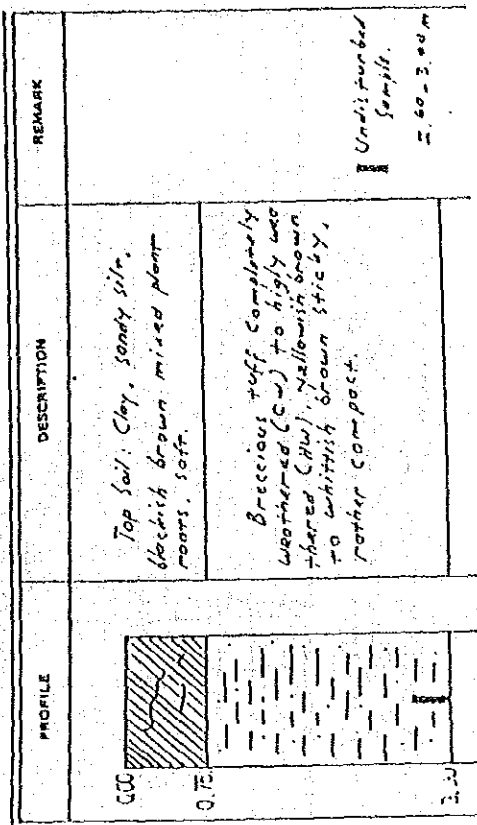 PROFILE
DESCRIPTION
REMARK
0.00
Top Soil: Clay, sandy silt,
blackish brown mixed plant
roots. Soft.
0.75
Breccious tuff Completely
weathered (CW) to higly wea
thered (HW), yallowish brown
to whittish brown sticky,
rather compact.
Undisturbed
Sample.